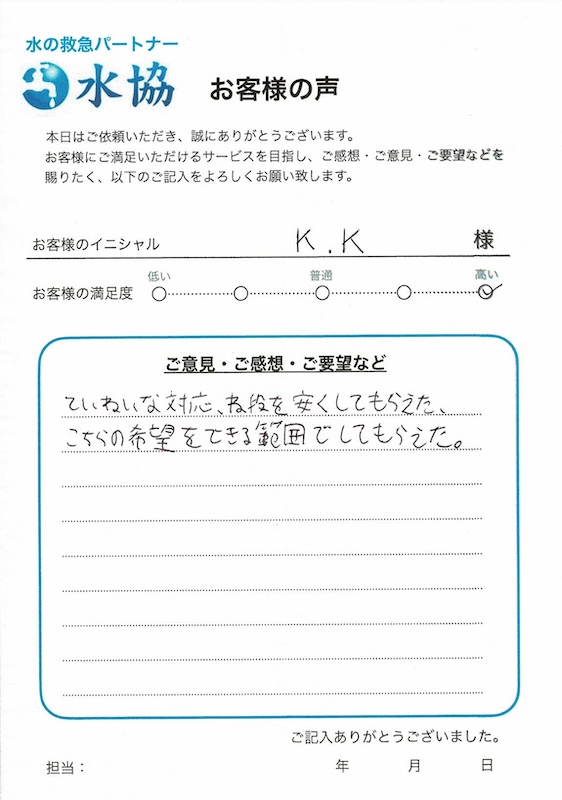 水の救急パートナー
水協
お客様の声
本日はご依頼いただき、誠にありがとうございます。
お客様にご満足いただけるサービスを目指し、ご感想・ご意見・ご要望などを
賜りたく、以下のご記入をよろしくお願い致します。
お客様のイニシャル K.K 様
低い 普通 高い
お客様の満足度
ご意見・ご感想・ご要望など
ていねいな対応、ね段を安くしてもらえた、
こちらの希望をできる範囲でしてもらえた。
ご記入ありがとうございました。
担当： 年 月 日